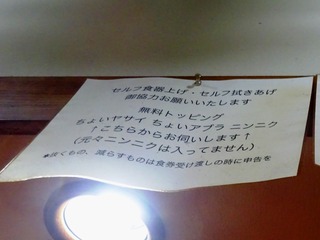 セルフ食器上げ・セルフ拭きあげ
御協力お願いいたします
無料トッピング
ちょいヤサイ ちょいアブラ ニンニク
↑こちらからお伺いします↑
(元々ニンニクは入ってません)
*抜くもの、減らすものは食券受け渡しの時に申告を